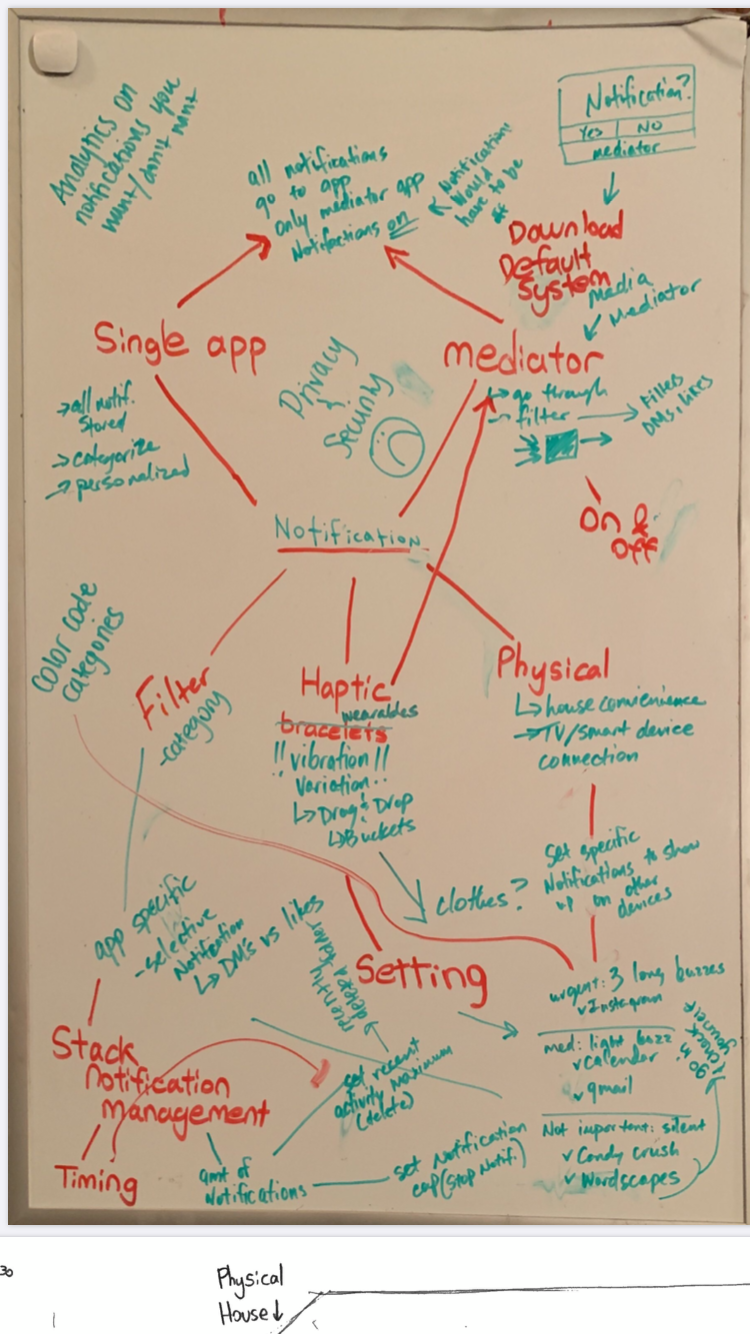 Analytics on
notifications you
want/don't want
all notifications
go to app
only mediator app
Notifactions on
Notifications
would
have to be
Notification?
Yes | NO
mediator
Download
Default
System
Media
Mediator
Single app
→ all notif.
stored
→ categorize
→ personalized
Privacy
&
Security
mediator
↳ go through
→ filter → Filters
DMs, likes
On &
Off
Notification
Color code
categories
Filter
-category
Haptic
wearables
bracelets
!! vibration !!
Variation..
↳ Drag & Drop
↳ Buckets
Physical
↳ house convenience
→ TV/smart device
connection
Set specific
Notifications to show
up on other
devices
clothes?
app specific
-selective
Notification
↳ DM's vs likes
Setting
urgent: 3 long buzzes
✓ Instagram
med: light buzz
✓ calendar
✓ gmail
Not important: silent
✓ Candy crush
✓ Wordscapes
go in
& check
yourself
Stack
Notification
management
Timing
amt of
Notifications
set recent
activity maximum
(delete)
set notification
cap (stop Notif.)
30
Physical
House ↓